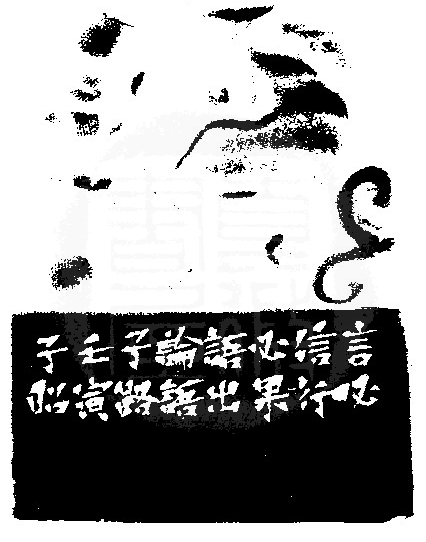 言必
信行
必果
語出
論語
子路
壬寅
子昭